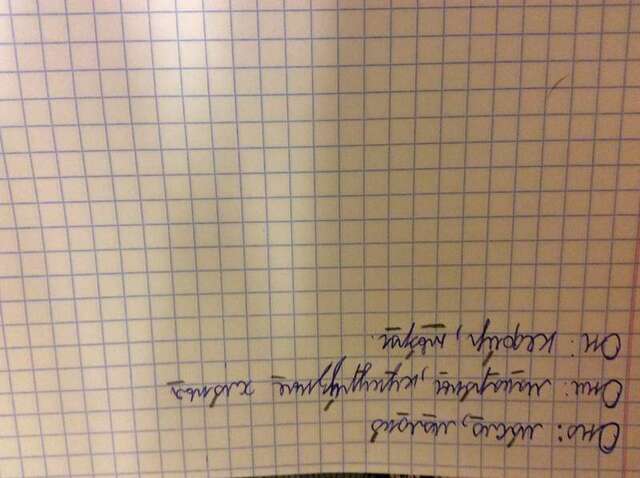 Оно: масло, молоко
Они: кукурузные хлопья
Он: кефир,